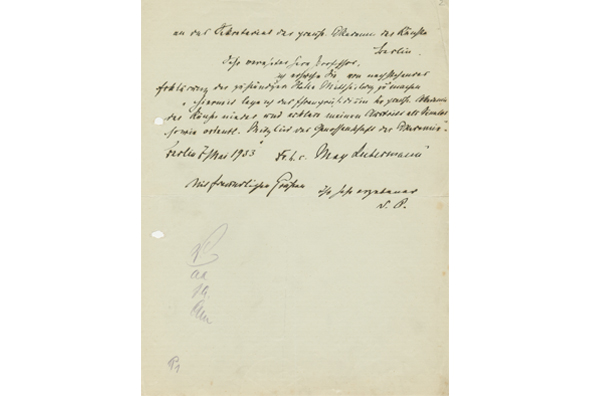 an das Sekretariat der preuß. Akademie der Künste
Berlin.
Sehr verehrter Herr Professor.
ich ersuche Sie von nachstehender
Erklärung der zuständigen Stelle Mittheilung zu machen
lege ich das Ehrenpräsidium der preuß. Akademie
der Künste nieder und erkläre meinen Austritt als Senator
sowie ordentl. Mitglied der Genossenschaft der Akademie.
Berlin 7 Mai 1933 Dr. h. c. Max Liebermann"
Mit freundlichen Grüßen Ihr sehr ergebener